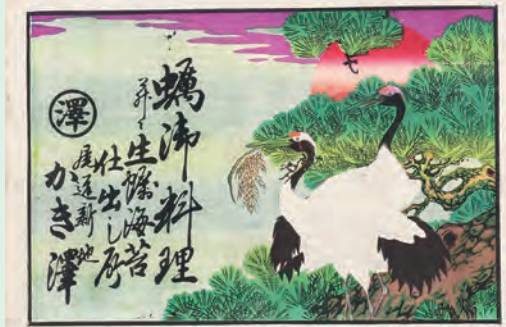 七
蠣御料理
并ニ生蠣海苔
仕出し所
尾道新地
かき澤
澤